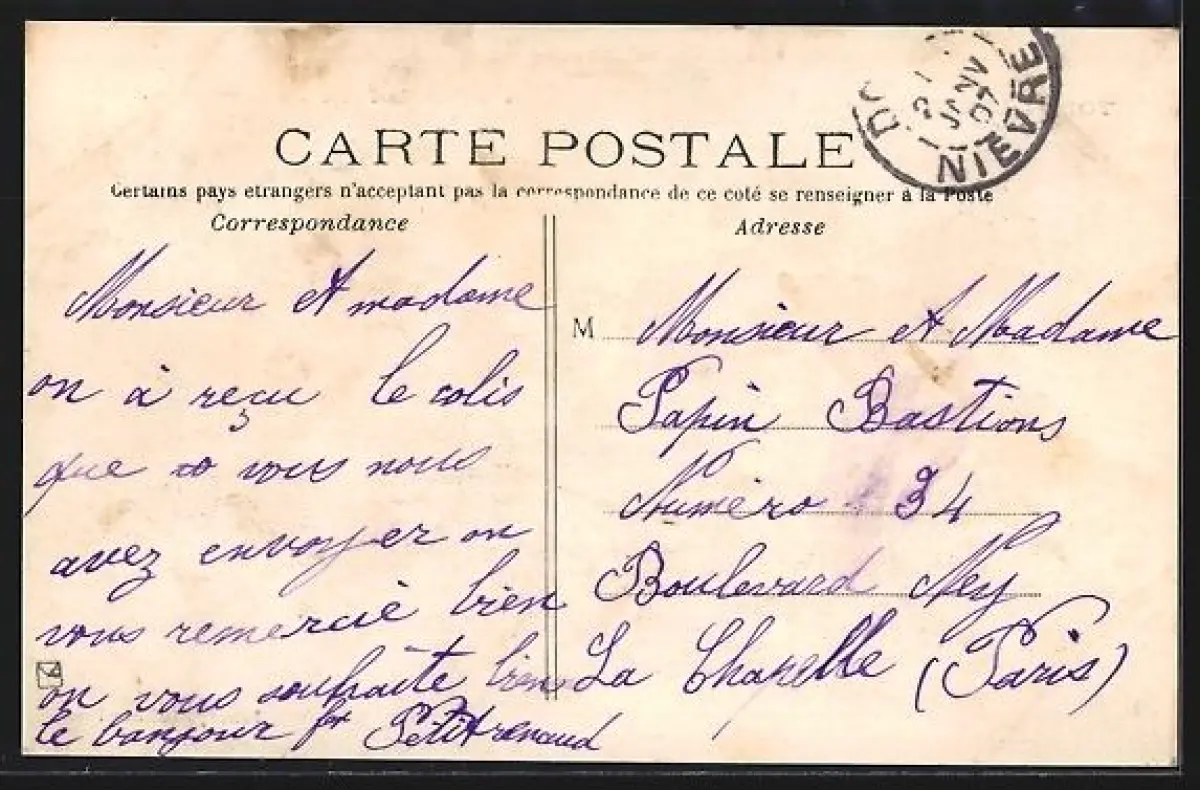 CARTE POSTALE
Certains pays etrangers n'acceptant pas la correspondance de ce coté se renseigner à la Poste
Correspondance
Monsieur et madame
on à reçu le colis
que vous nous
avez envoyer on
vous remercie bien
on vous souhaite bien
le bonjour
Petitrenaud
Adresse
M Monsieur et Madame
Papin Bastions
Numéro 34
Boulevard Ney
La Chapelle (Paris)
21
JANV
07
NIEVRE